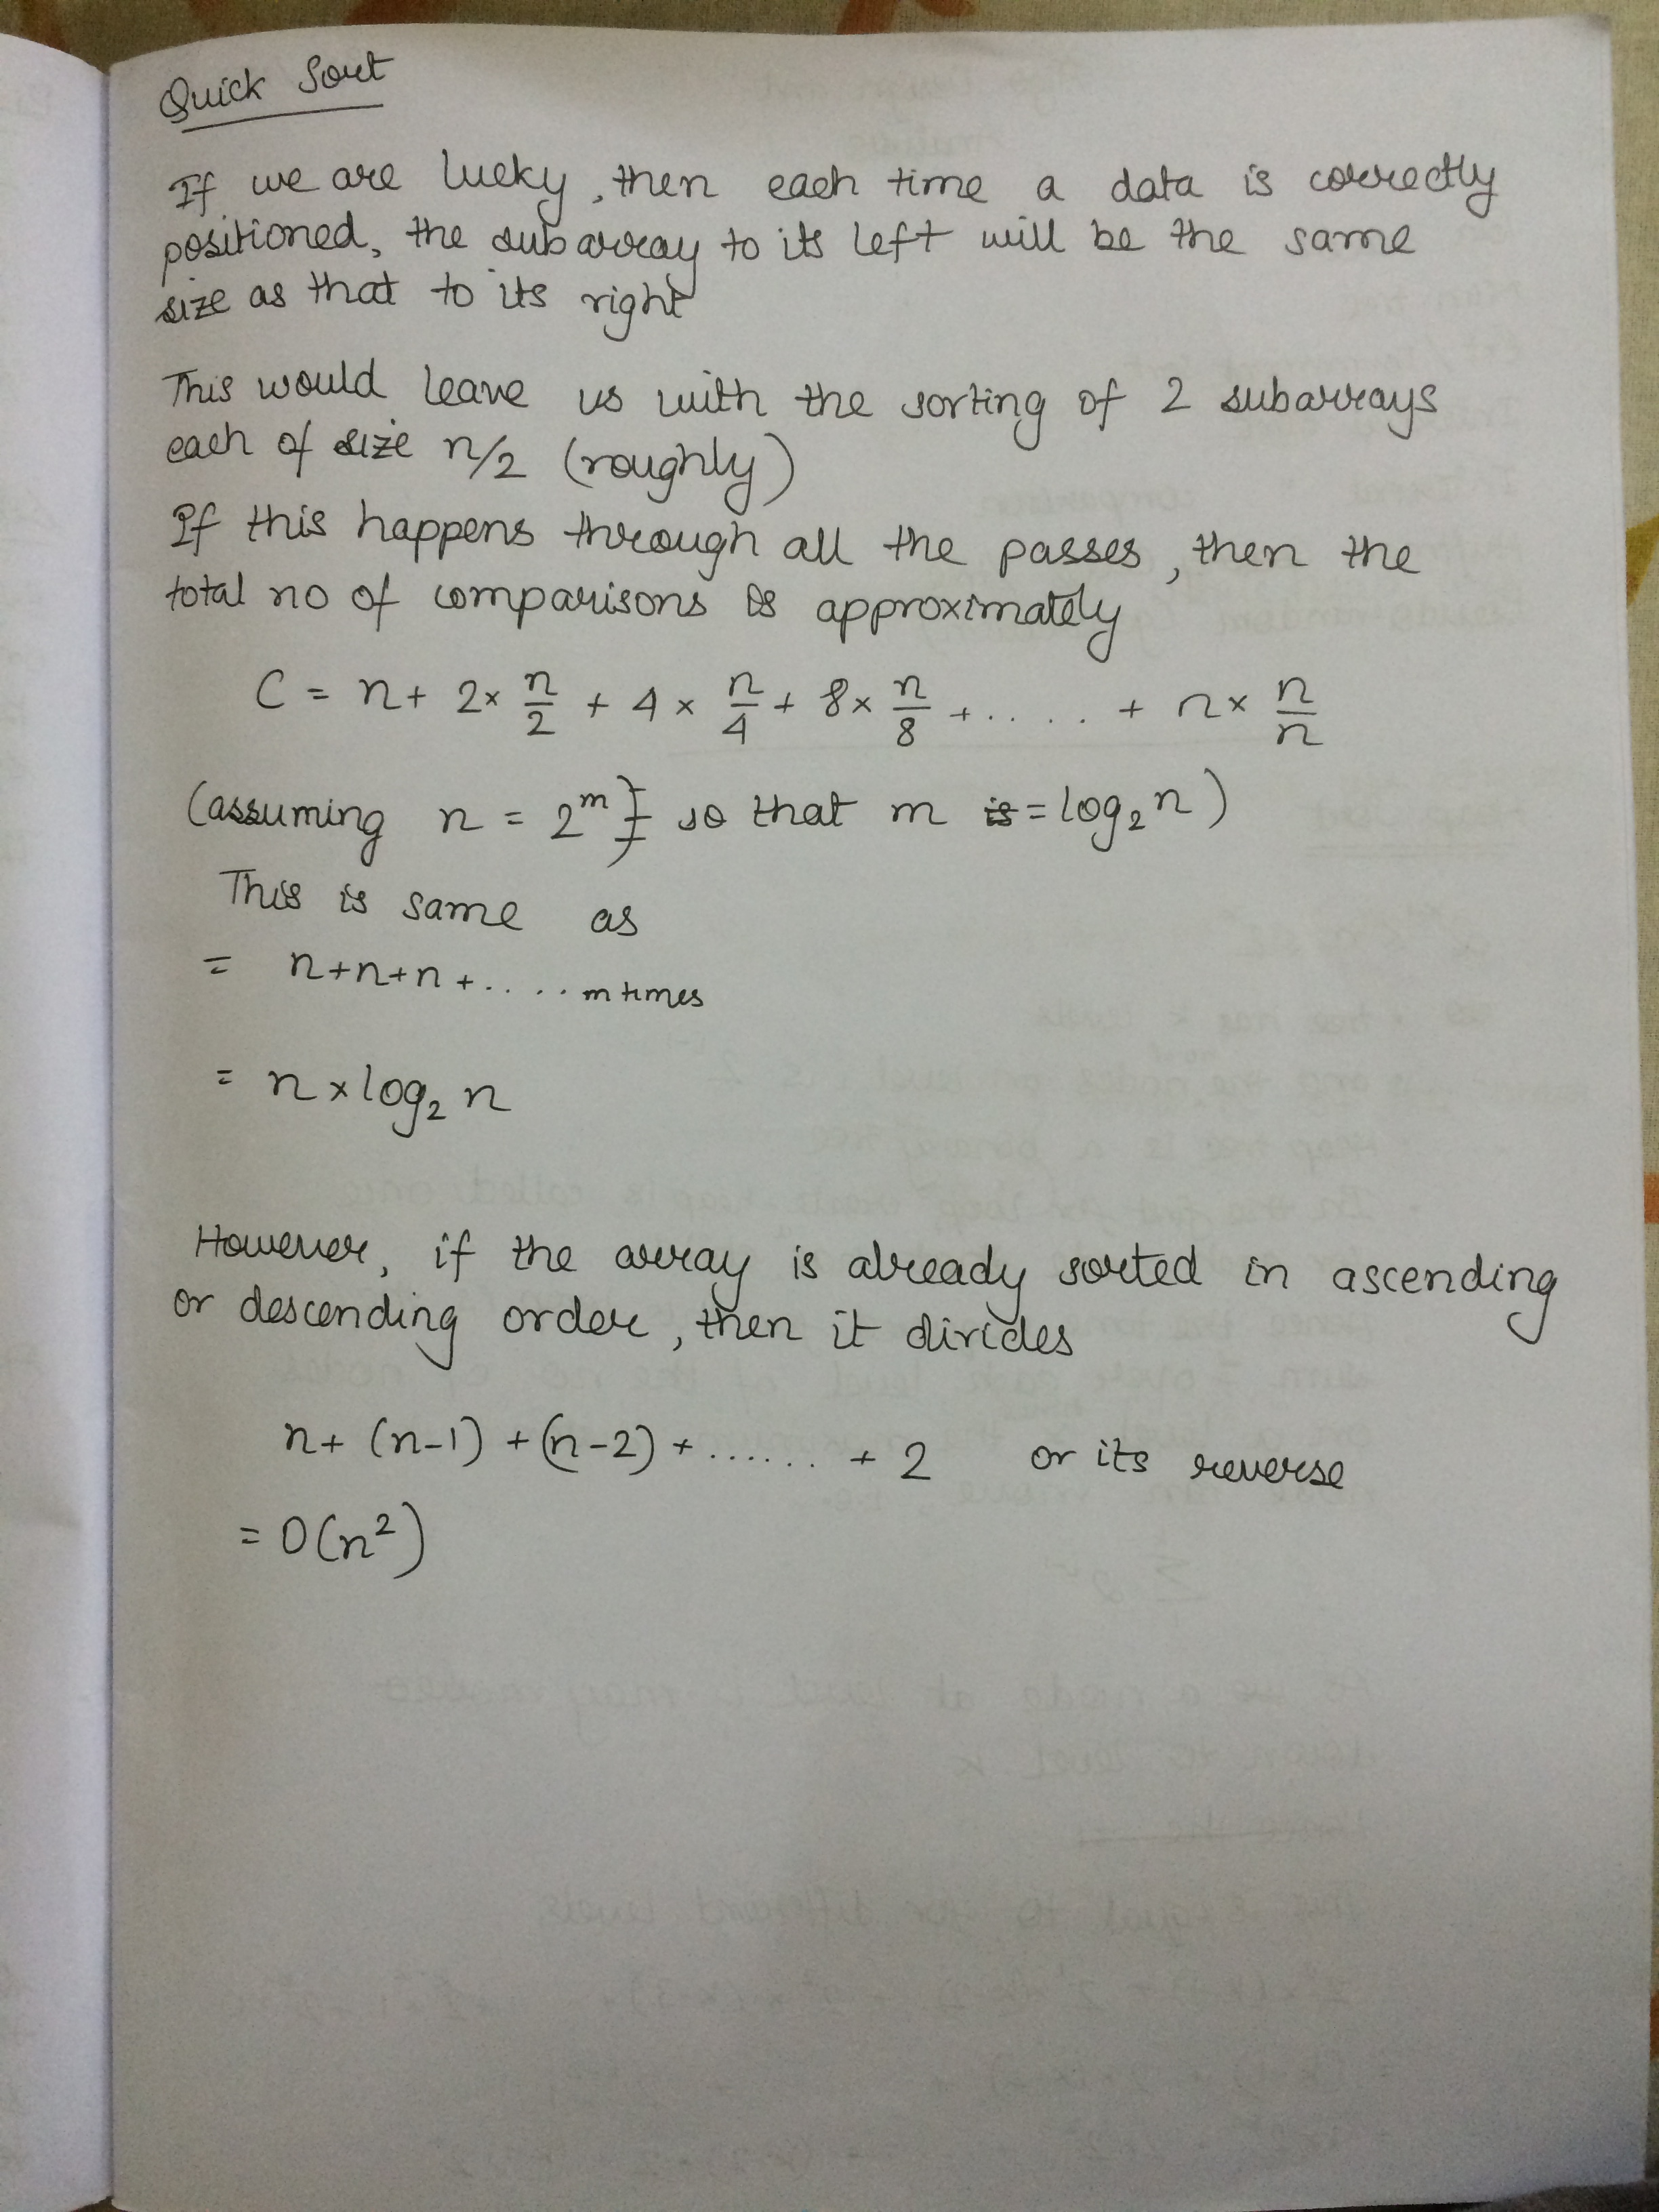 Quick Sort
If we are lucky, then each time a data is correctly
positioned, the subarray to its left will be the same
size as that to its right
This would leave us with the sorting of 2 subarrays
each of size n/2 (roughly)
If this happens through all the passes, then the
total no of comparisons is approximately
C = n + 2 × n/2 + 4 × n/4 + 8 × n/8 + ..... + n × n/n
(assuming n = 2^m so that m = log₂ n)
This is same as
= n+n+n+ ..... m times
= n × log₂ n
However, if the array is already sorted in ascending
or descending order, then it divides
n + (n-1) + (n-2) + ...... + 2 or its reverse
= O(n²)